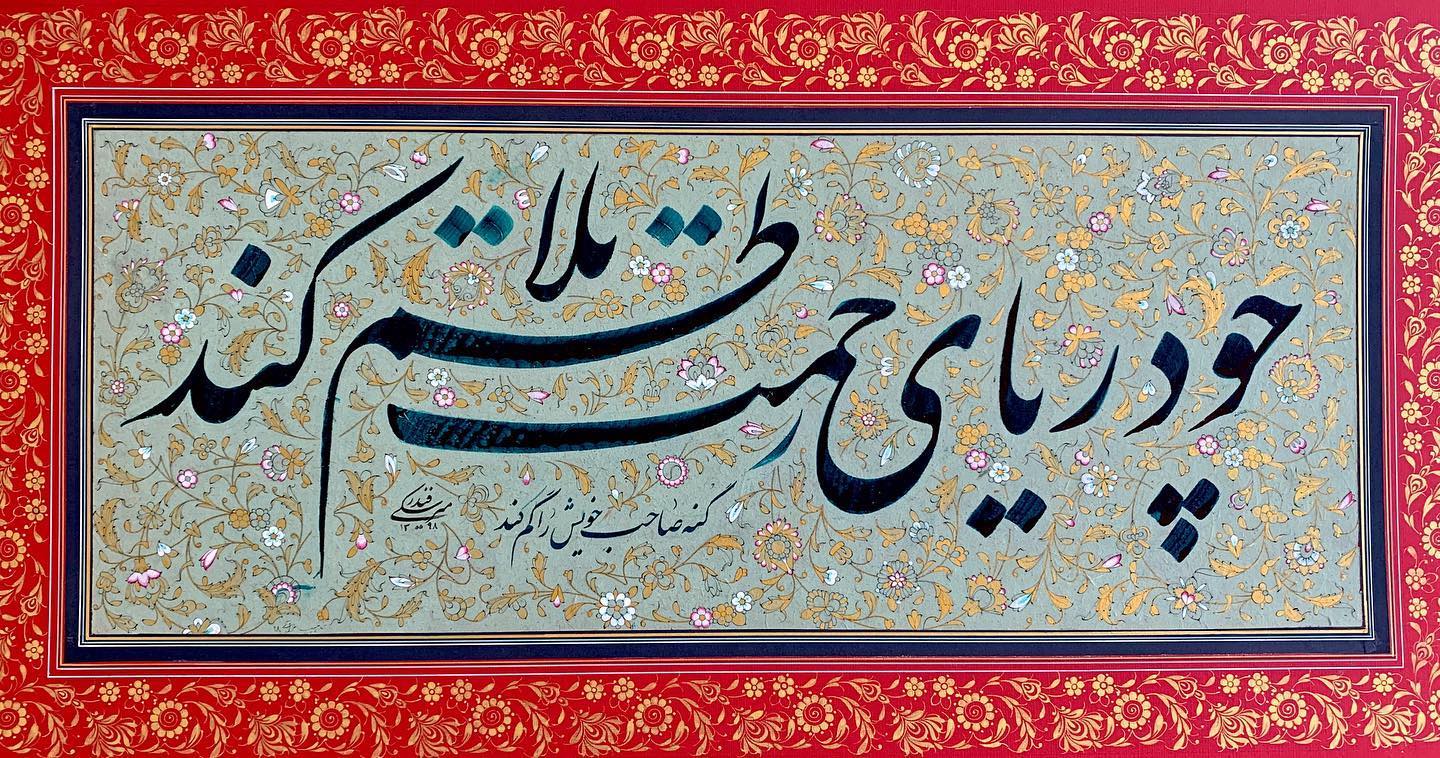 چو دریای رحمت تلاطم کند
گنه صاحب خویش را گم کند
۱۳۹۸